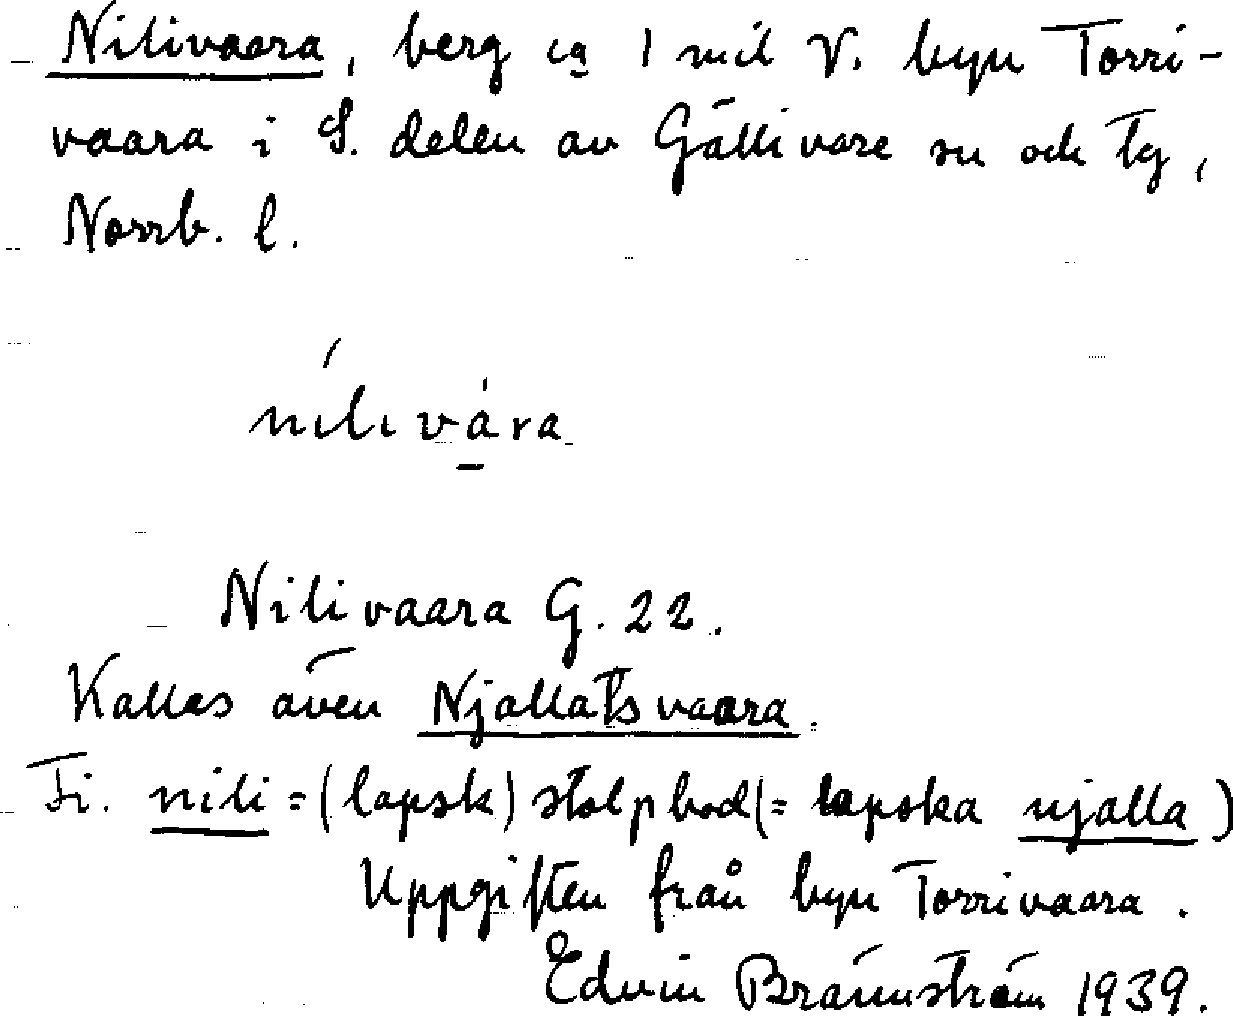 Nilivaara, berg ca 1 mil V. byn Torri-
vaara i S. delen av Gällivare sn och tg,
Norrb. l.
nílivára
Nilivaara G. 22.
Kallas även Njallatsvaara.
Fi. nili = (lapsk) stolpbod (= lapska njalla)
Uppgiften från byn Torrivaara.
Edvin Brännström 1939.